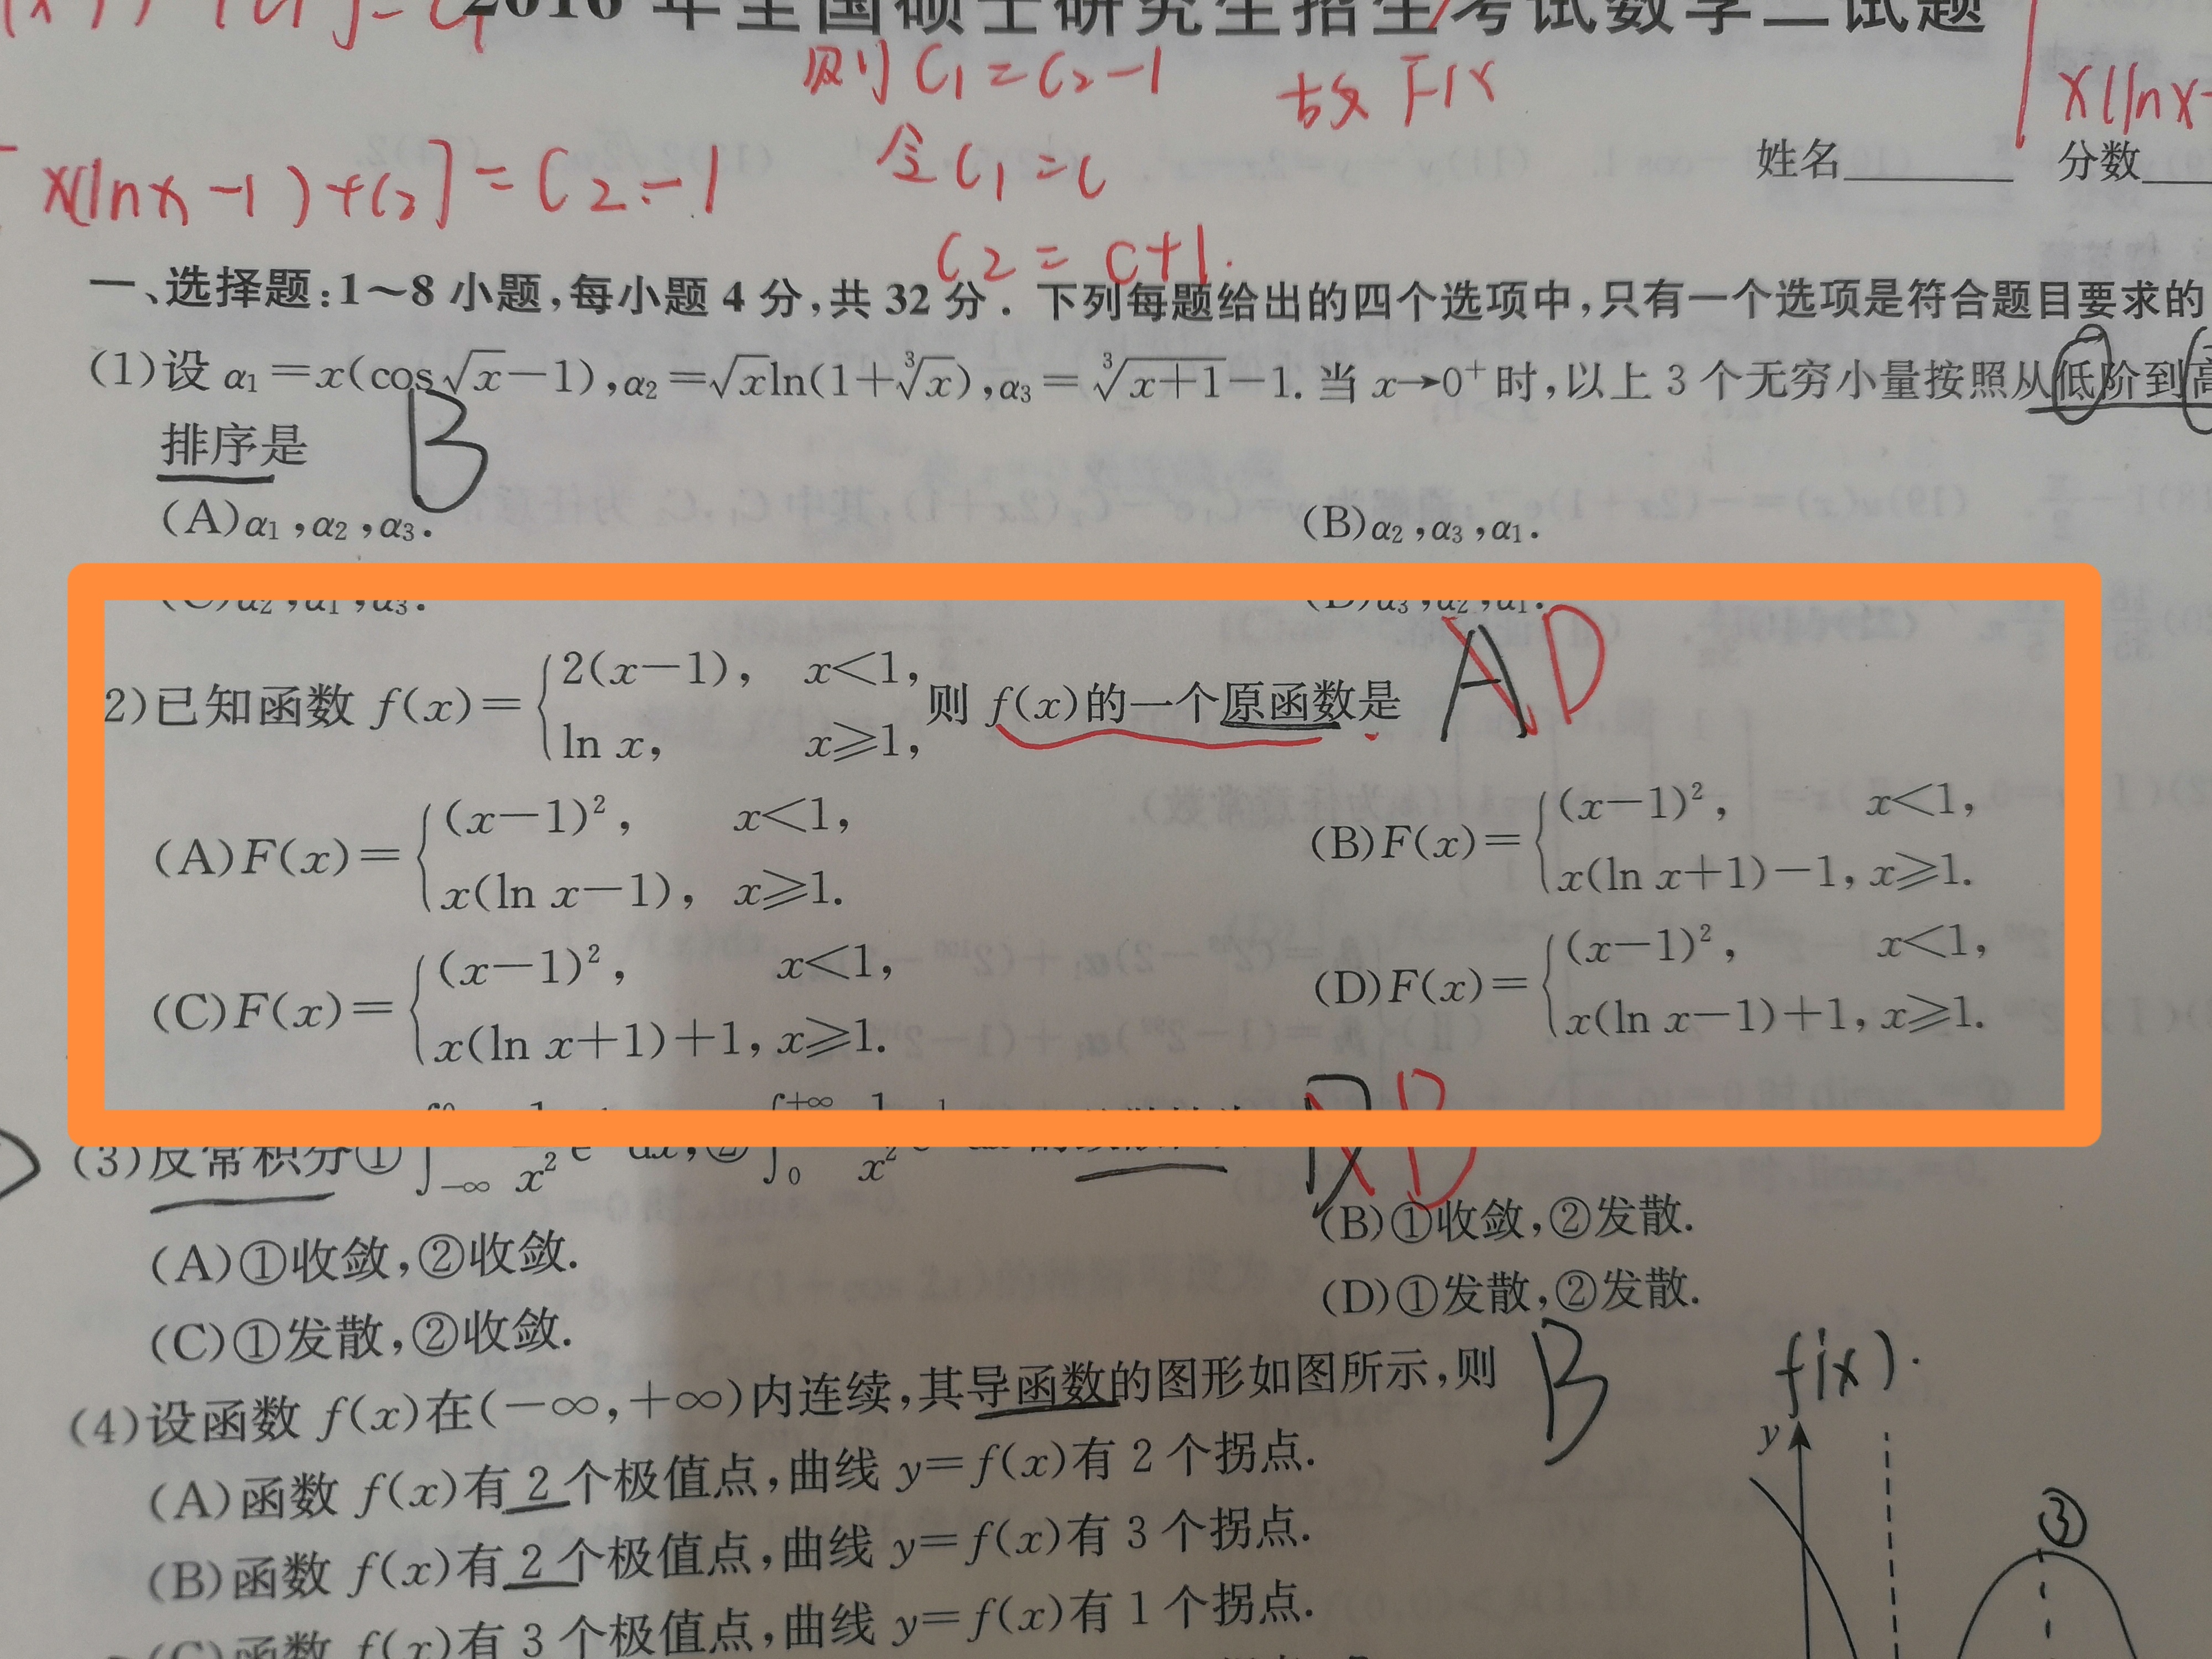 2016年全国硕士研究生招生考试数学二试题
则 C₁=C₂-1 故 F(x
x(lnx-
令C₁=C
x(lnx-1)+C₂]=C₂-1
姓名______ 分数
C₂=C+1.
一、选择题:1～8小题,每小题4分,共32分. 下列每题给出的四个选项中,只有一个选项是符合题目要求的
(1)设 α₁=x(cos√x-1),α₂=√xln(1+∛x),α₃=∛(x+1)-1. 当 x→0⁺时,以上3个无穷小量按照从低阶到高
排序是 B
(A)α₁,α₂,α₃. (B)α₂,α₃,α₁.
(C)α₂,α₁,α₃. (D)α₃,α₂,α₁.
2)已知函数 f(x)={2(x-1), x<1, 则 f(x)的一个原函数是 A D
ln x, x≥1,
(A)F(x)={(x-1)², x<1, (B)F(x)={(x-1)², x<1,
x(ln x-1), x≥1. x(ln x+1)-1, x≥1.
(C)F(x)={(x-1)², x<1, (D)F(x)={(x-1)², x<1,
x(ln x+1)+1, x≥1. x(ln x-1)+1, x≥1.
(3)反常积分① ② D B
(A)①收敛,②收敛. (B)①收敛,②发散.
(C)①发散,②收敛. (D)①发散,②发散.
(4)设函数 f(x)在(-∞,+∞)内连续,其导函数的图形如图所示,则 B f(x).
(A)函数 f(x)有2个极值点,曲线 y=f(x)有2个拐点. y
(B)函数 f(x)有2个极值点,曲线 y=f(x)有3个拐点. ③
(C)函数 f(x)有3个极值点,曲线 y=f(x)有1个拐点.